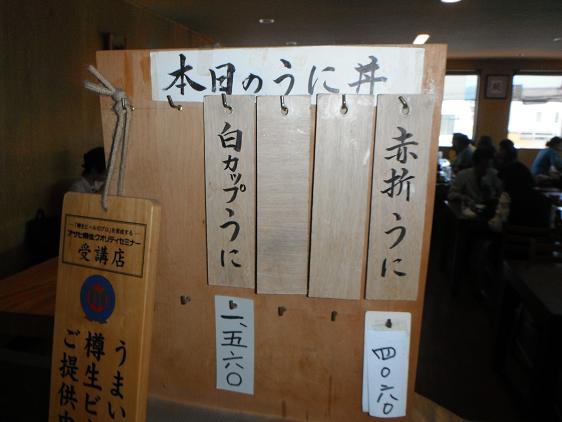 本日のうに丼
赤折うに
四〇六〇
白カップうに
一、五六〇
「樽生ビールのプロ」を育成する
アサヒ樽生クオリティセミナー
受講店
うまい
樽生ビ
ご提供